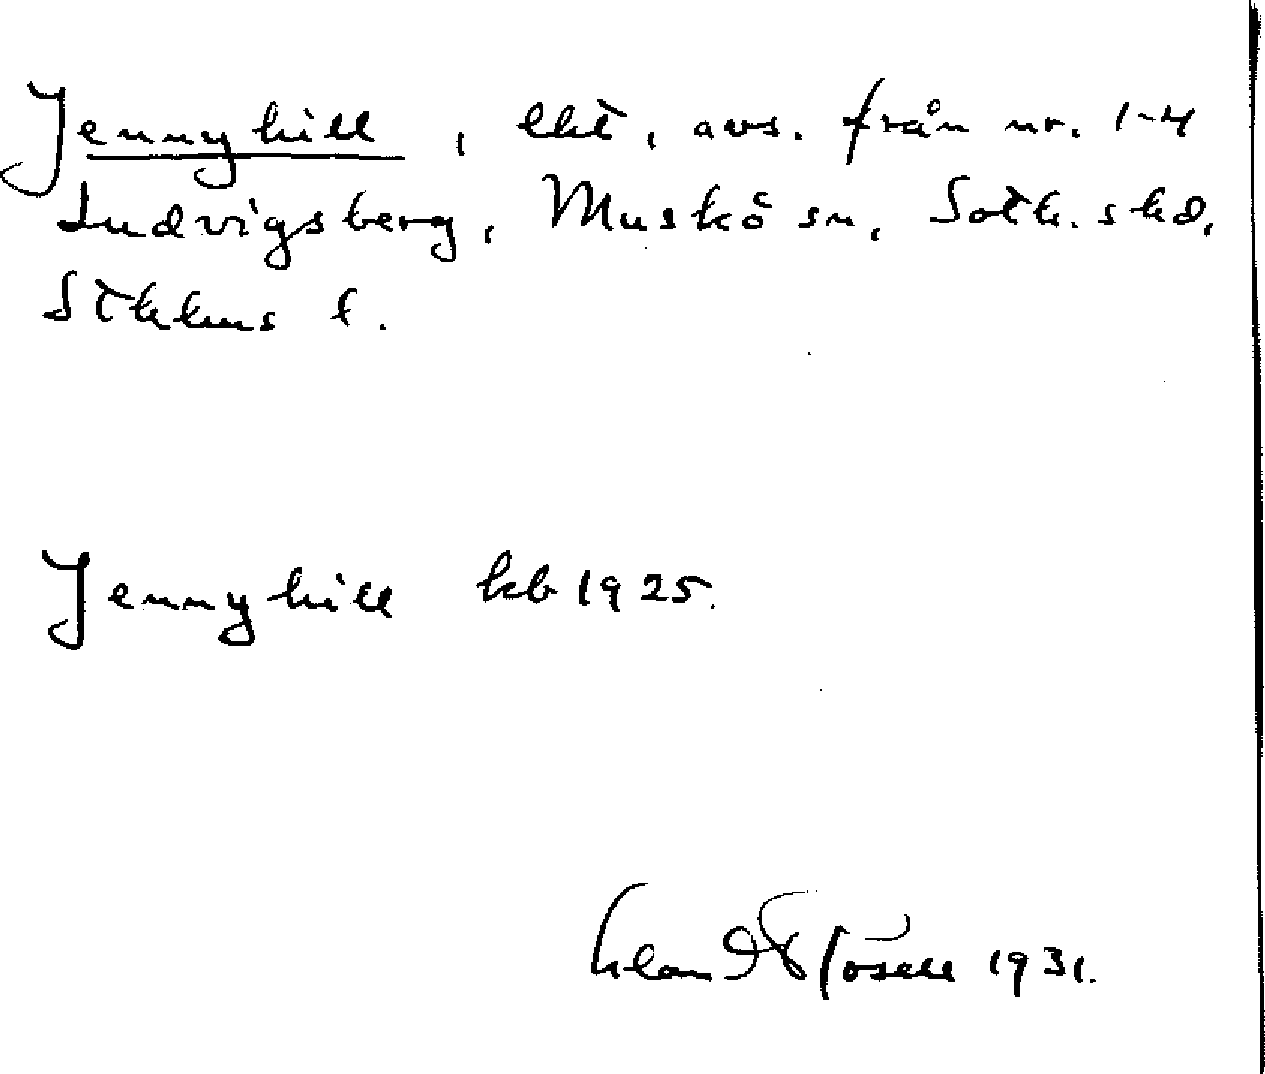 Jennyhill, lht, avs. från nr. 1-4
Ludvigsberg, Muskö sn, Soth. shd,
Sthlms l.
Jennyhill kb 1925.
1931.